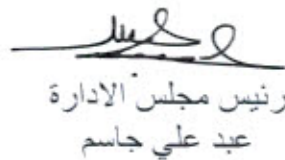 رئيس مجلس الادارة
عبد علي جاسم